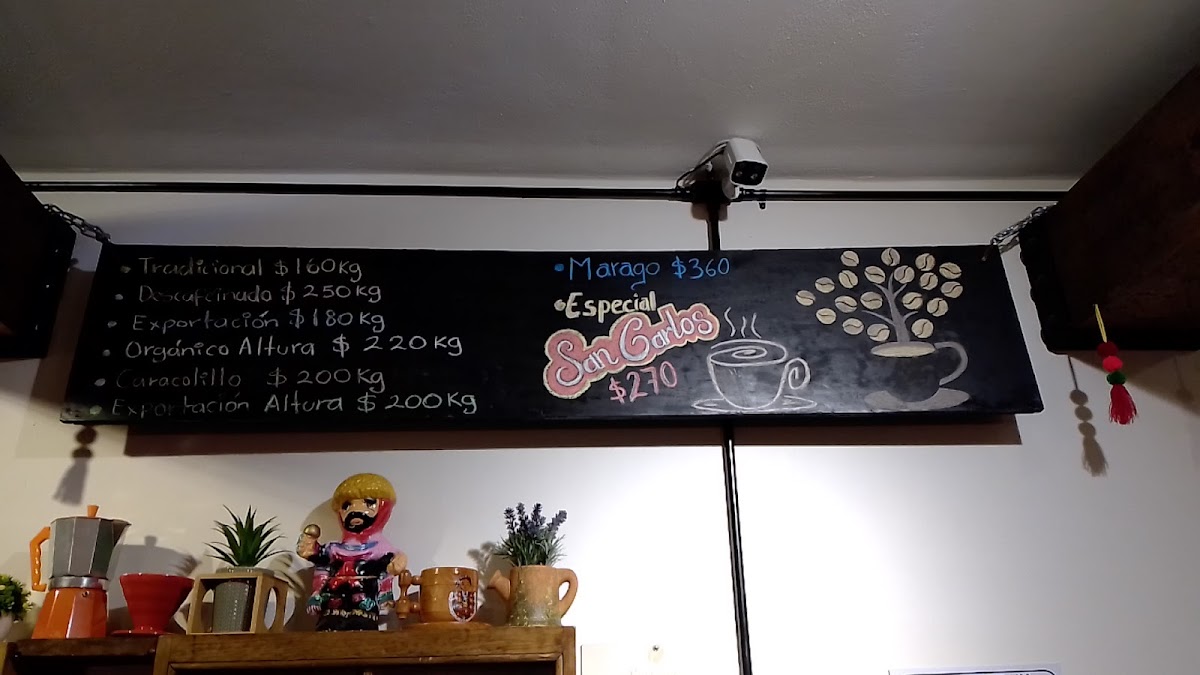 Tradicional $160Kg
Descafeinado $250Kg
Exportación $180Kg
Orgánico Altura $220Kg
Caracolillo $200Kg
Exportación Altura $200Kg
Marago $360
Especial
San Carlos
$270